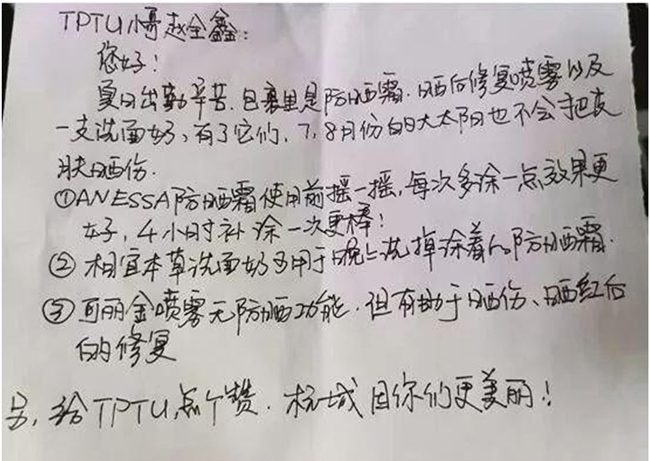 TPTU小哥赵全鑫：
您好！
夏日出勤辛苦．包裹里是防晒霜．晒后修复喷雾以及
一支洗面奶，有了它们，7,8月份的大太阳也不会把皮
肤晒伤．
①ANESSA防晒霜使用前摇一摇，每次多涂一点效果更
好，4小时补涂一次更棒！
②相宜本草洗面奶可用于晚上洗掉涂着的防晒霜．
③可丽金喷雾无防晒功能．但有助于晒伤、晒红后
的修复
另，给TPTU点个赞．杭城因你们更美丽！